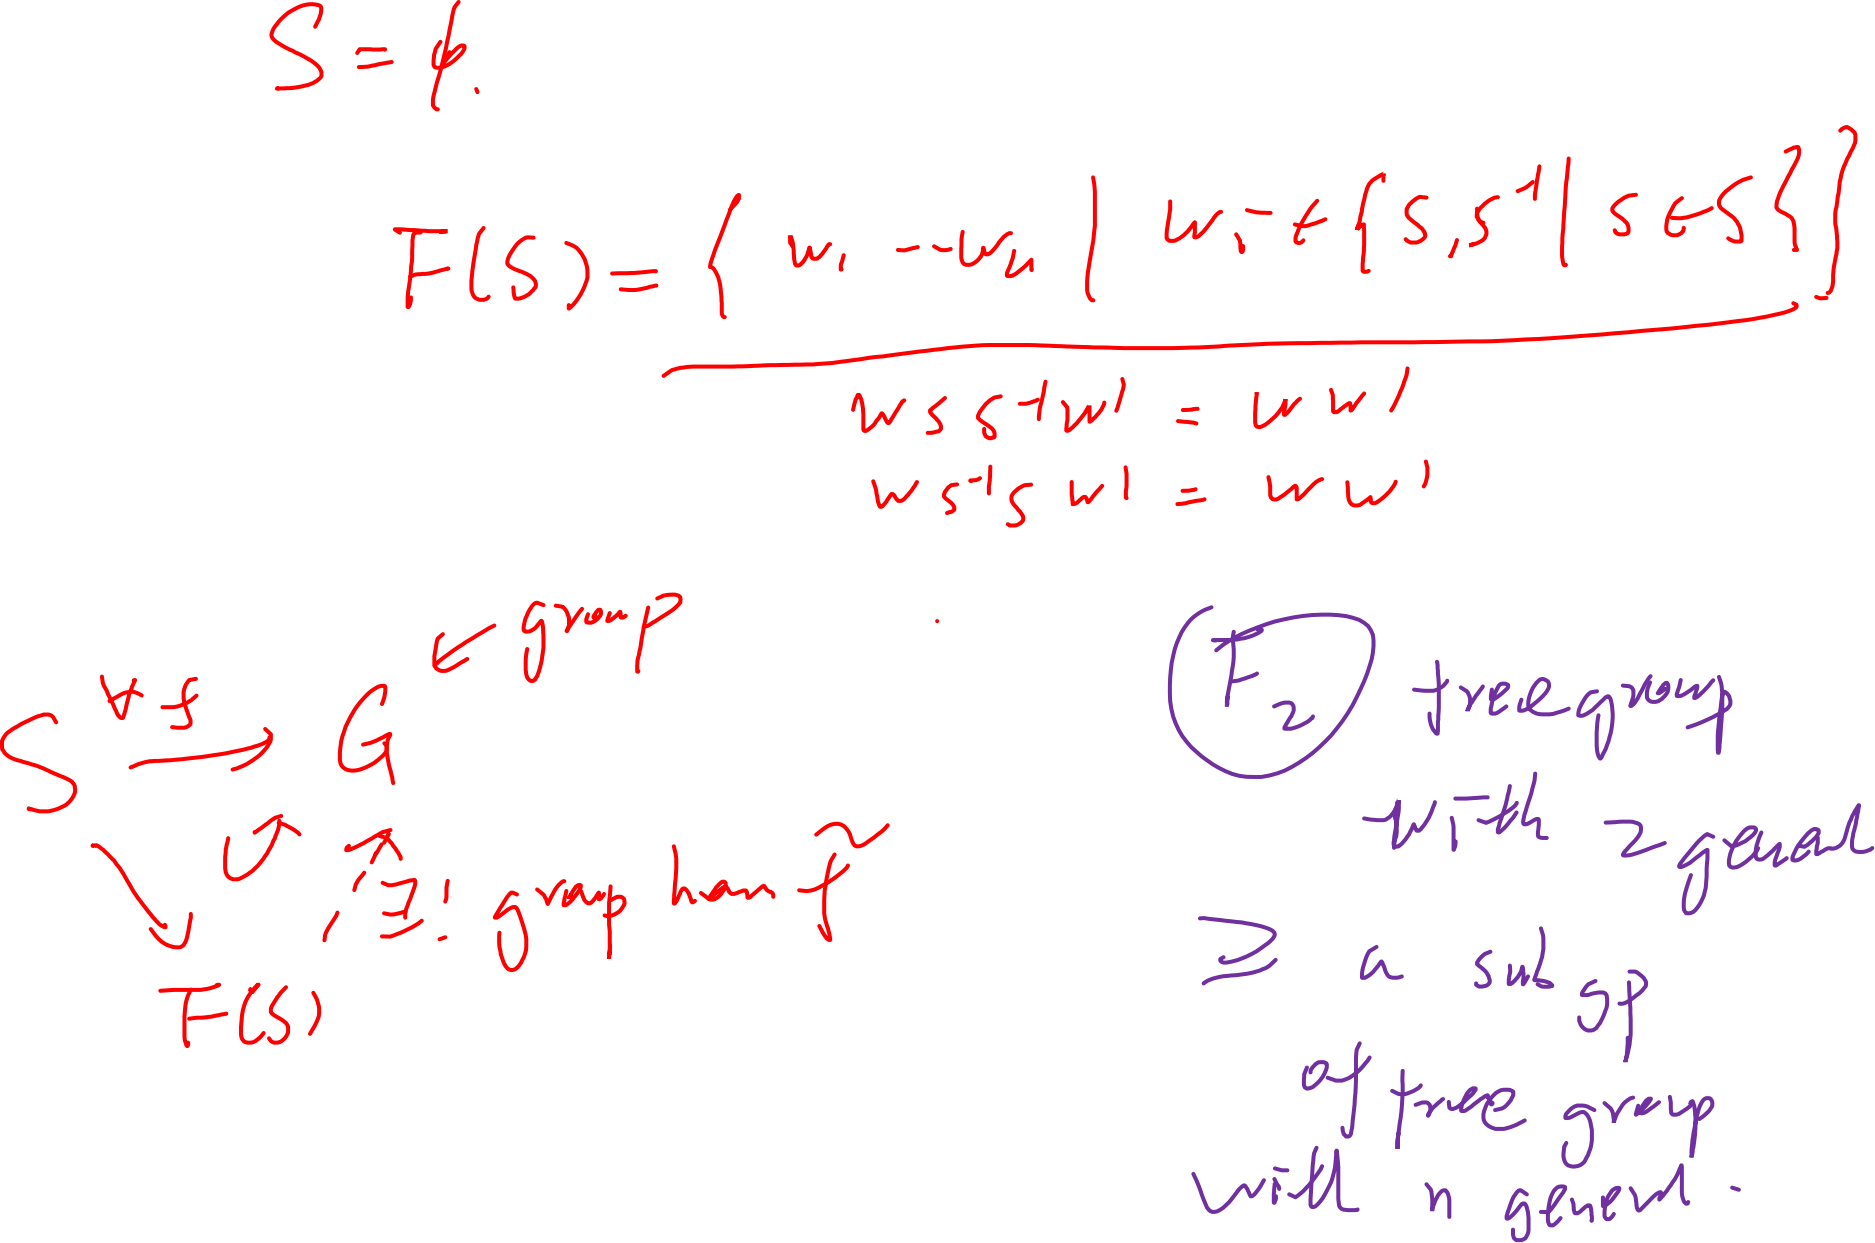 S = ϕ.
F(S) = { w₁ -- wₙ | wᵢ ∈ {s, s⁻¹ | s ∈ S} }
w s s⁻¹ w' = w w'
w s⁻¹ s w' = w w'
← group
S ∀f → G
∃! group hom f̃
F(S)
F₂ free group
with 2 
≥ a sub gp
of free group
with n